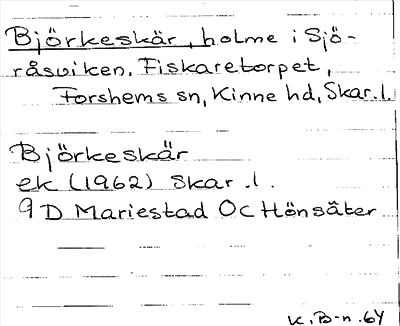 Björkeskär, holme i Sjö-
råsviken, Fiskaretorpet,
Forshems sn, Kinne hd, Skar.l.
Björkeskär
ek (1962) Skar.l.
9 D Mariestad OC Hönsäter
K.B-n.64